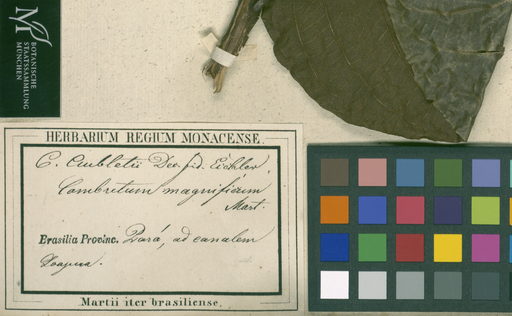 BOTANISCHE
STAATSSAMMLUNG
MÜNCHEN
HERBARIUM REGIUM MONACENSE.
C. Aubletii Dec. fid. Eichler.
Combretum magnificum
Mart.
Brasilia Provinc. Pará, ad canalem
Martii iter brasiliense.